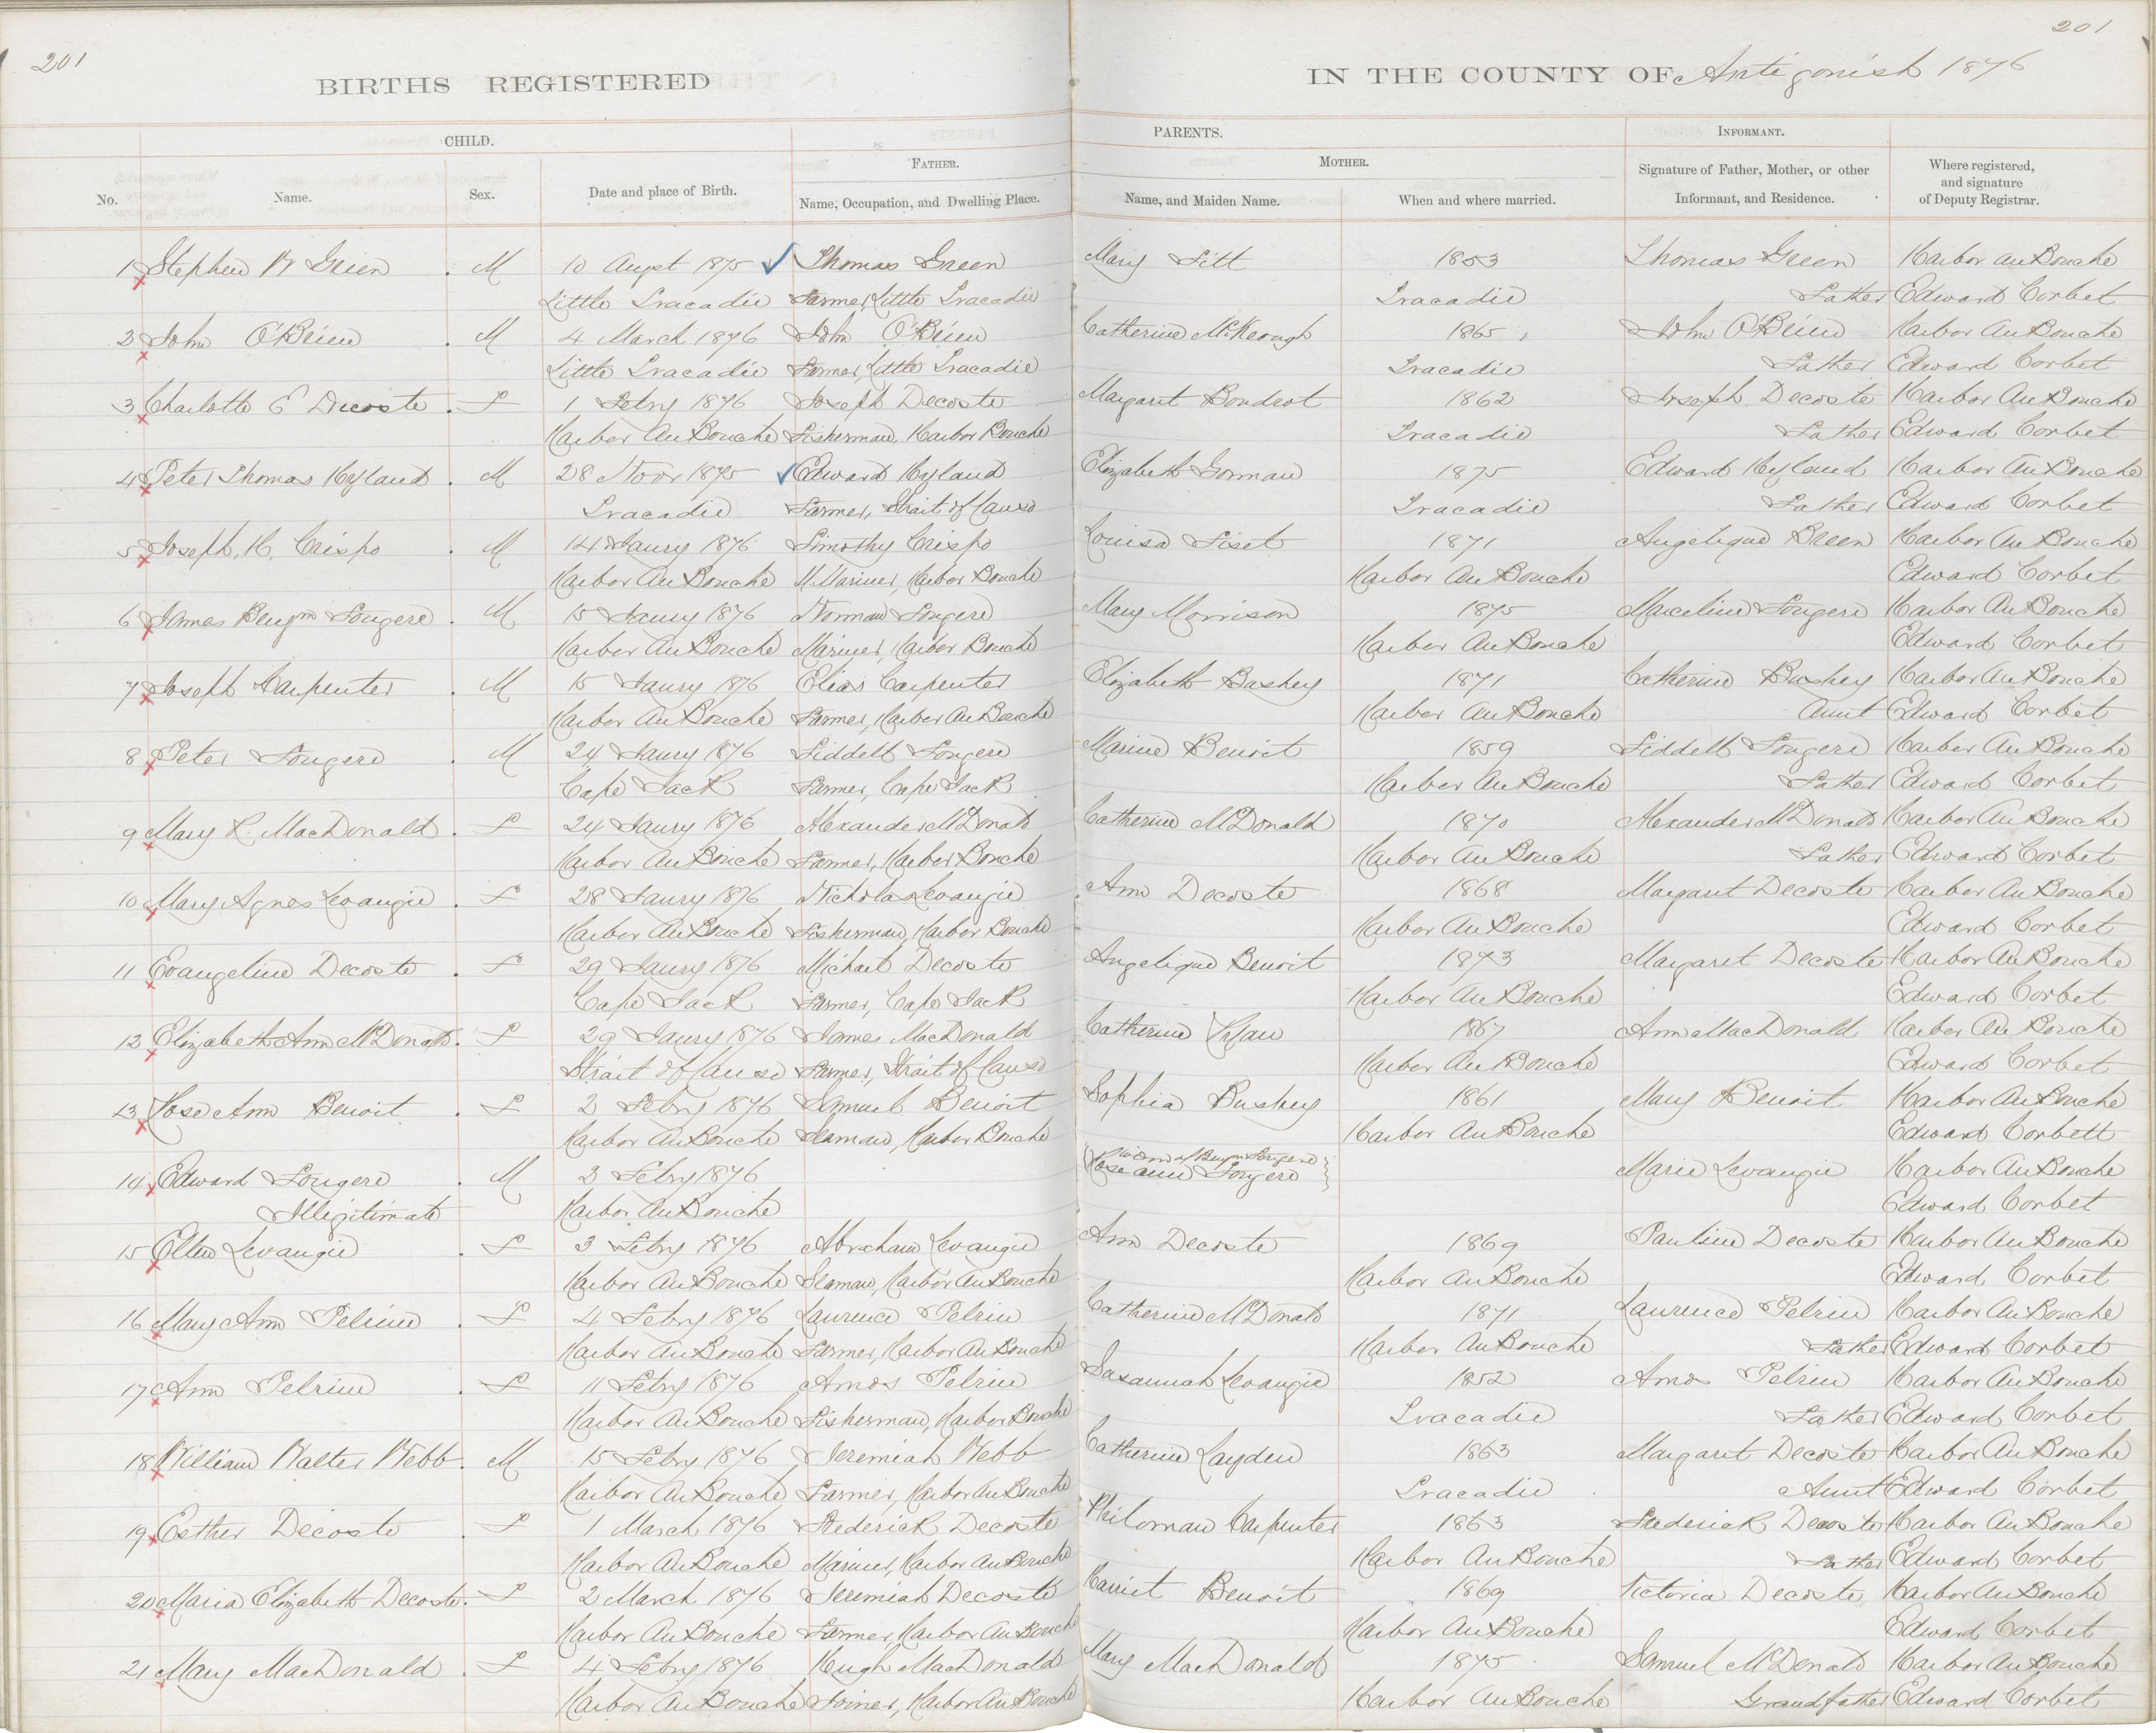 201
201
BIRTHS REGISTERED
IN THE COUNTY OF Antigonish 1876
CHILD.
PARENTS.
INFORMANT.
FATHER.
MOTHER.
No.
Name.
Sex.
Date and place of Birth.
Name, Occupation, and Dwelling Place.
Name, and Maiden Name.
When and where married.
Signature of Father, Mother, or other
Informant, and Residence.
Where registered,
and signature
of Deputy Registrar.
1 Stephen W Green . M 10 Augst 1875 Thomas Green Mary Fitt 1853 Thomas Green Harbor au Bouche
Little Tracadie Farmer, Little Tracadie Tracadie Father Edward Corbet
2 John O'Brien . M 4 March 1876 John O'Brien Catherine McKeough 1865 John O'Brien Harbor Au Bouche
Little Tracadie Farmer, Little Tracadie Tracadie Father Edward Corbet
3 Charlotte E Decoste . F 1 Febry 1876 Joseph Decoste Margaret Boudrot 1862 Joseph Decoste Harbor Au Bouche
Harbor Au Bouche Fisherman, Harbor Bouche Tracadie Father Edward Corbet
4 Peter Thomas Hyland . M 28 Novr 1875 Edward Hyland Elizabeth Gorman 1875 Edward Hyland Harbor Au Bouche
Tracadie Farmer, Strait of Canso Tracadie Father Edward Corbet
5 Joseph, H, Crispo . M 14 Janry 1876 Timothy Crispo Louisa Fiset 1871 Angelique Breen Harbor Au Bouche
Harbor Au Bouche M. Mariner, Harbor Bouche Harbor Au Bouche Edward Corbet
6 James Benjm Fougere . M 15 Janry 1876 Norman Fougere Mary Morrison 1875 Marceline Fougere Harbor Au Bouche
Harbor Au Bouche Mariner, Harbor Bouche Harbor Au Bouche Edward Corbet
7 Joseph Carpenter . M 15 Janry 1876 Elias Carpenter Elizabeth Bushey 1871 Catherine Bushey Harbor Au Bouche
Harbor Au Bouche Farmer, Harbor Au Bouche Harbor Au Bouche Aunt Edward Corbet
8 Peter Fougere . M 24 Janry 1876 Fiddelt Fougere Marine Benoit 1859 Fiddelt Fougere Harbor Au Bouche
Cape Jack Farmer, Cape Jack Harbor Au Bouche Father Edward Corbet
9 Mary R. MacDonald . F 24 Janry 1876 Alexander McDonald Catherine McDonald 1870 Alexander McDonald Harbor Au Bouche
Harbor Au Bouche Farmer, Harbor Bouche Harbor Au Bouche Father Edward Corbet
10 Mary Agnes Levangie . F 28 Janry 1876 Nicholas Levangie Ann Decoste 1868 Margaret Decoste Harbor Au Bouche
Harbor Au Bouche Fisherman, Harbor Bouche Harbor Au Bouche Edward Corbet
11 Evangeline Decoste . F 29 Janry 1876 Michael Decoste Angelique Benoit 1873 Margaret Decoste Harbor Au Bouche
Cape Jack Farmer, Cape Jack Harbor Au Bouche Edward Corbet
12 Elizabeth Ann McDonald . F 29 Janry 1876 James MacDonald Catherine 1867 Ann MacDonald Harbor Au Bouche
Strait of Canso Farmer, Strait of Canso Harbor Au Bouche Edward Corbet
13 Rose Ann Benoit . F 2 Febry 1876 Samuel Benoit Sophia Bushey 1861 Mary Benoit Harbor Au Bouche
Harbor Au Bouche Seaman, Harbor Bouche Harbor Au Bouche Edward Corbett
14 Edward Fougere . M 3 Febry 1876 Widow of Benjm Fougere Rose ann Fougere Marie Levangie Harbor Au Bouche
Illigitimate Harbor Au Bouche Edward Corbet
15 Ellen Levangie . F 3 Febry 1876 Abraham Levangie Ann Decoste 1869 Pauline Decoste Harbor Au Bouche
Harbor Au Bouche Seaman, Harbor Au Bouche Harbor Au Bouche Edward Corbet
16 Mary Ann Pelrine . F 4 Febry 1876 Laurence Pelrin Catherine McDonald 1871 Laurence Pelrin Harbor Au Bouche
Harbor Au Bouche Farmer, Harbor Au Bouche Harbor Au Bouche Father Edward Corbet
17 Ann Pelrine . F 11 Febry 1876 Amos Pelrin Susannah Levangie 1852 Amos Pelrin Harbor Au Bouche
Harbor Au Bouche Fisherman, Harbor Bouche Tracadie Father Edward Corbet
18 William Walter Webb . M 15 Febry 1876 Jeremiah Webb Catherine Layden 1863 Margaret Decoste Harbor Au Bouche
Harbor Au Bouche Farmer, Harbor Au Bouche Tracadie Aunt Edward Corbet
19 Esther Decoste . F 1 March 1876 Frederick Decoste Philoman Carpenter 1863 Frederick Decoste Harbor Au Bouche
Harbor Au Bouche Mariner, Harbor Au Bouche Harbor Au Bouche Father Edward Corbet
20 Maria Elizabeth Decoste . F 2 March 1876 Jeremiah Decoste Harriet Benoit 1869 Victoria Decoste Harbor Au Bouche
Harbor Au Bouche Farmer, Harbor Au Bouche Harbor Au Bouche Edward Corbet
21 Mary MacDonald . F 4 Febry 1876 Hugh MacDonald Mary MacDonald 1875 Samuel McDonald Harbor Au Bouche
Harbor Au Bouche Joiner, Harbor Au Bouche Harbor Au Bouche Grandfather Edward Corbet